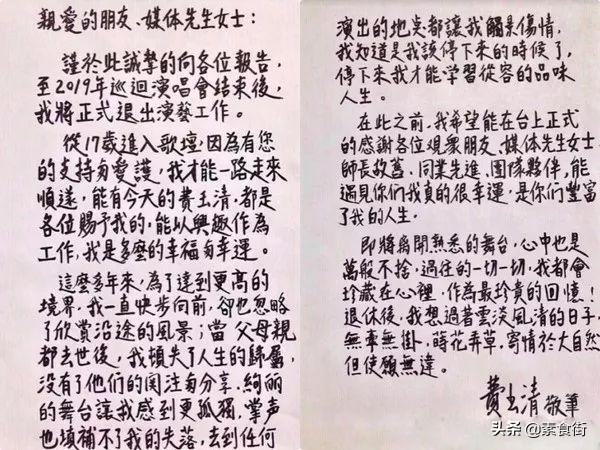 親愛的朋友、媒体先生女士：
謹於此誠摯的向各位報告，
至2019年巡迴演唱會結束後，
我將正式退出演藝工作。
從17歲進入歌壇，因為有您
的支持与愛護，我才能一路走來
順遂，能有今天的費玉清，都是
各位賜予我的，能以興趣作為
工作，我是多麼的幸福与幸運。
這麼多年來，為了達到更高的
境界，我一直快步向前，卻也忽略
了欣賞沿途的風景；當父母親
都去世後，我頓失了人生的歸屬，
沒有了他們的関注与分享，絢麗
的舞台讓我感到更孤獨，掌声
也填補不了我的失落，去到任何
演出的地点都讓我觸景傷情，
我知道是我該停下來的時候了，
停下來我才能學習從容的品味
人生。
在此之前，我希望能在台上正式
的感謝各位观衆朋友、媒体先生女士、
師長故舊、同業先進、團隊夥伴，能
遇見你們我真的很幸運，是你們豐富
了我的人生。
即將离開熟悉的舞台，心中也是
萬般不捨，過往的一切一切，我都會
珍藏在心裡，作為最珍貴的回憶！
退休後，我想過著雲淡風清的日子，
無牽無掛，時花弄草，寄情於大自然
但使願無違。
費玉清 敬筆
头条 @素食街